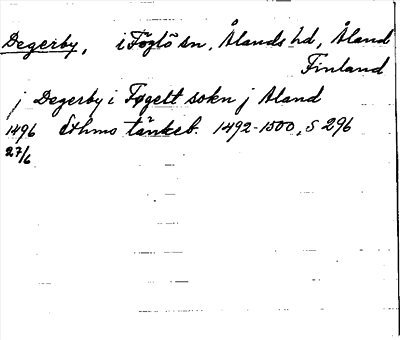 Degerby, i Föglö sn, Ålands hd, Åland
Finland
j Degerby i Føgelt sokn j Aland
1496 Sthms tänkeb. 1492-1500, s 296
27/6